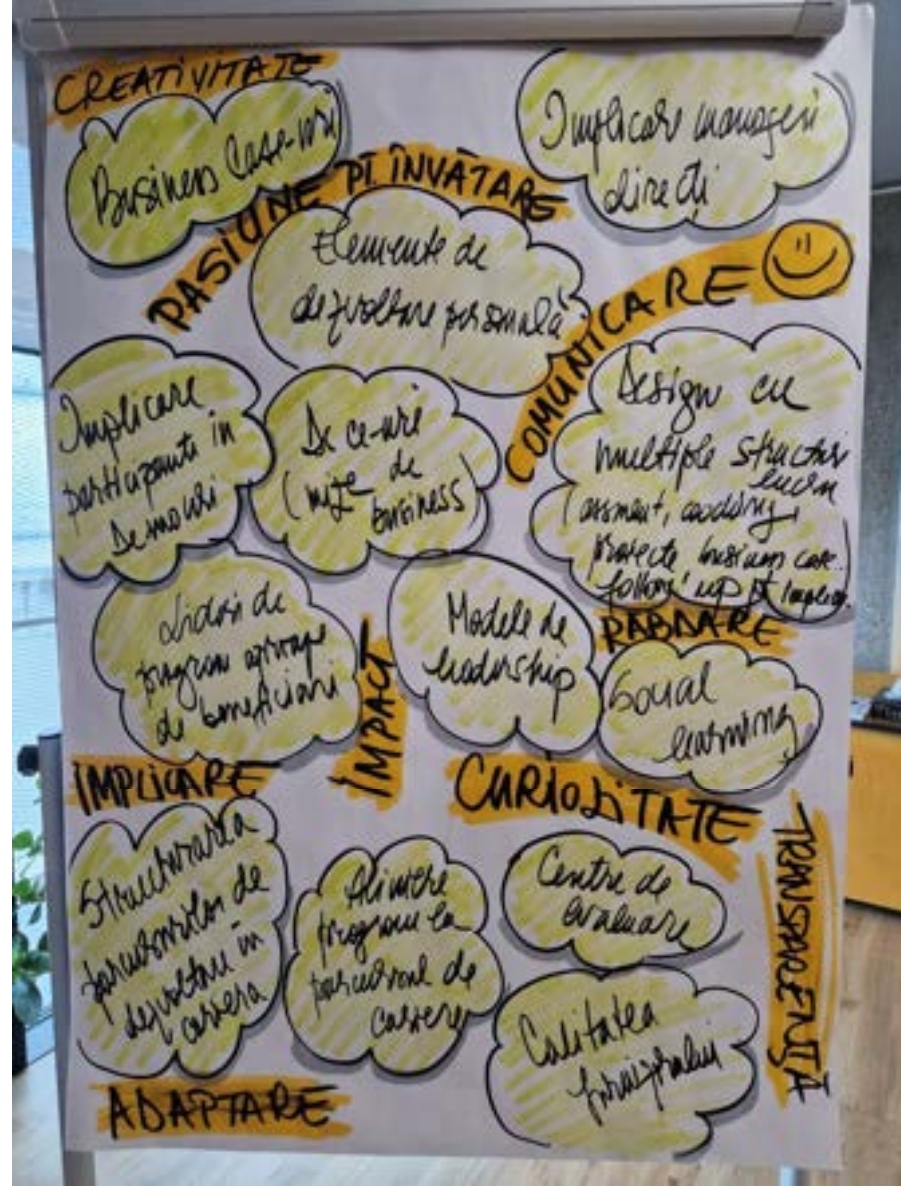 CREATIVITATE
Business Case-uri
Implicare manageri
direcți
PASIUNE PT ÎNVĂTARE
Elemente de
dezvoltare personală
COMUNICARE
Implicare
participanti in
Demouri
De ce-uri
(mize de
business)
Design cu
multiple structuri
proiecte business case
follow up pt implem.
program aproape
de beneficiari
IMPACT
Modele de
leadership
RABDARE
Social
learning
IMPLICARE
CURIOZITATE
Structurarea
parcursurilor de
dezvoltare in
cariera
Aliniere
program la
parcursul de
cariere
Centre de
evaluare
TRANSPARENȚĂ
Calitatea
ADAPTARE